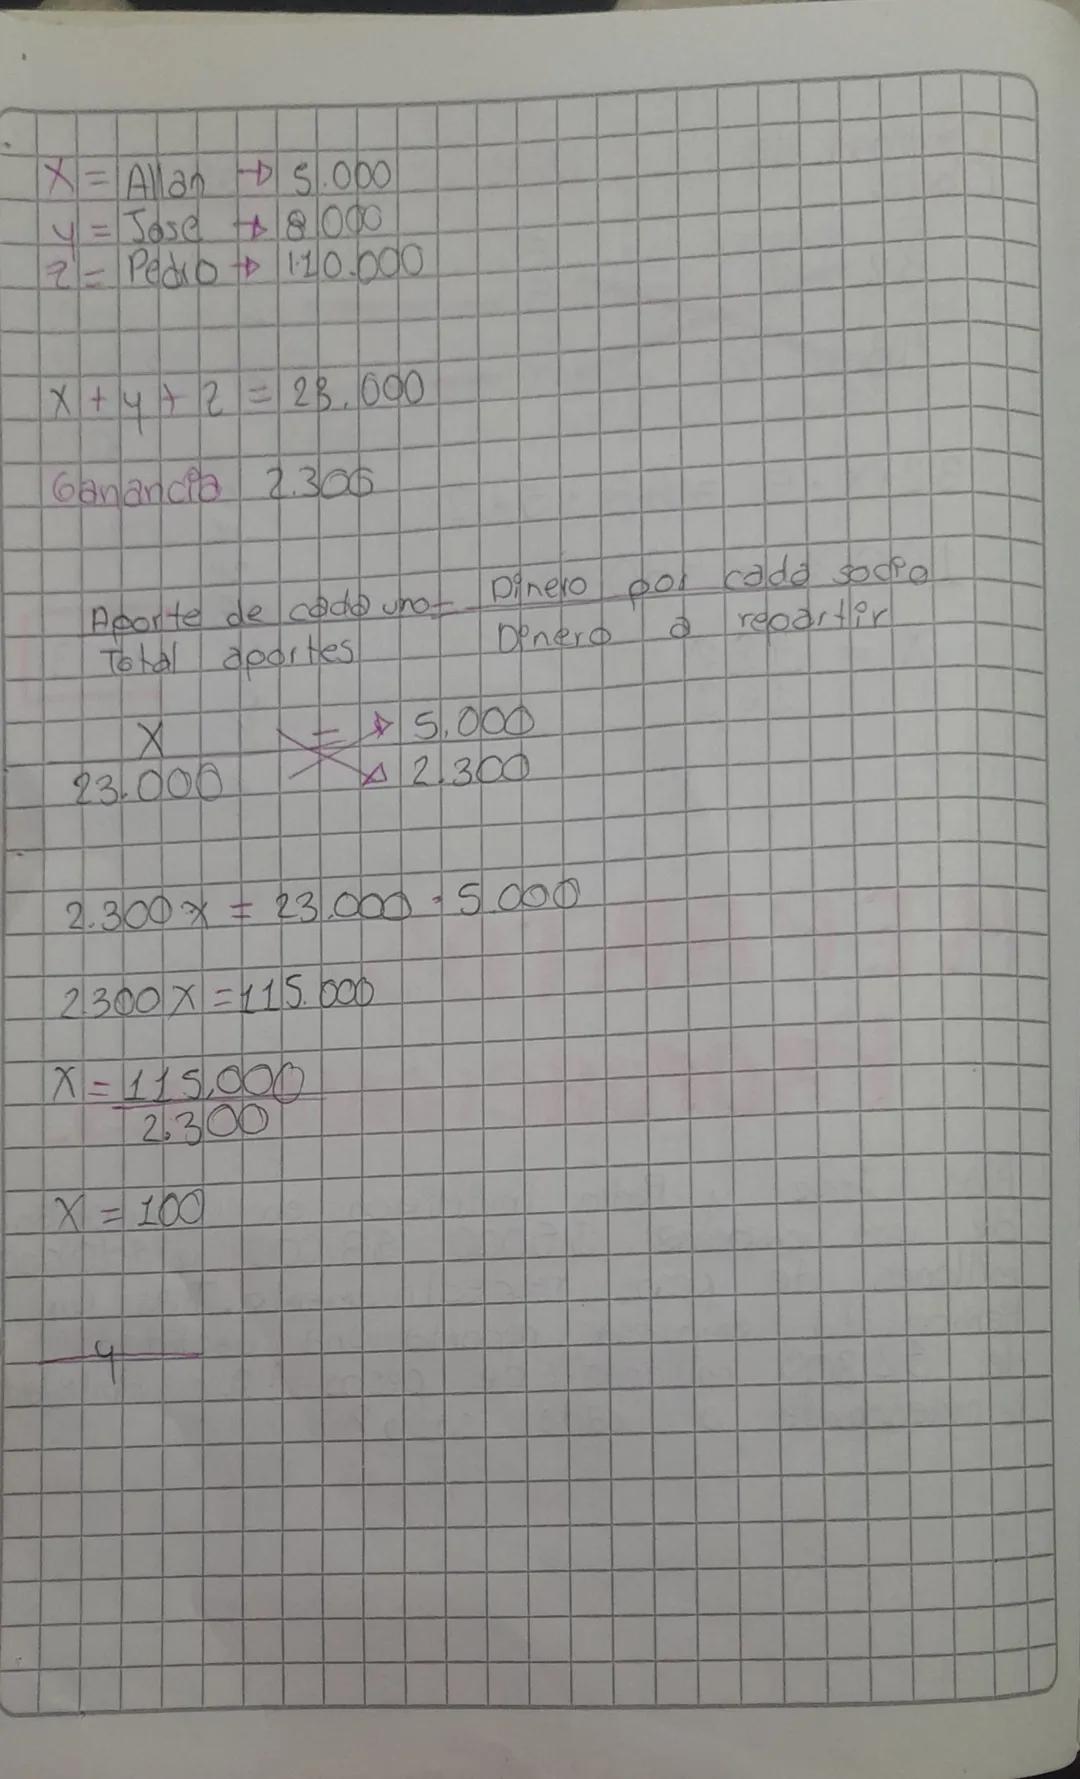 X = Allan → 5.000
y = Jose → 8000
z = Pedro → 110.000
x + y + z = 23.000
Ganancia 2.300
Aporte de cada uno = Dinero por cada socio
Total aportes Dinero a repartir
X = → 5.000
23.000 2.300
2.300x = 23.000 · 5.000
2300x = 115.000
X = 115,000
2.300
X = 100
y